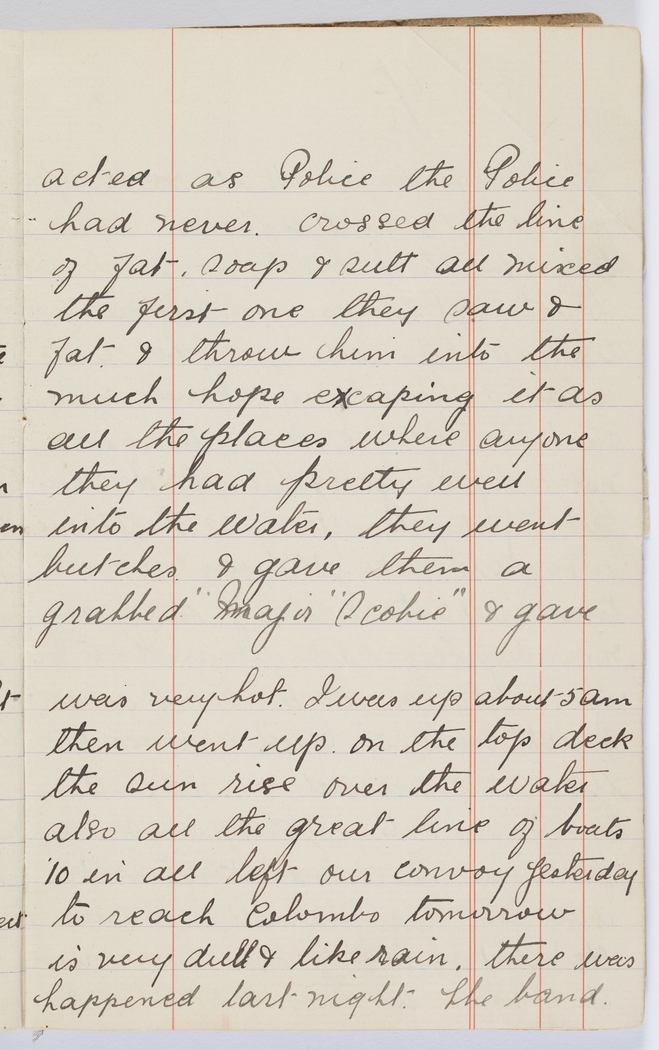 acted as Police the Police
had never. crossed the line
of fat, soap & sult all mixed
the first one they saw &
fat. & throw him into the
much hope excaping it as
all the places where anyone
they had pretty well
into the water, they went
butches. & gave them a
grabbed "Major "Scobie" & gave
was very hot. I was up about 5 am
then went up. on the top deck
the sun rise over the water
also all the great line of boats
10 in all left our convoy yesterday
to reach Colombo tomorrow
is very dull & like rain. there was
happened last night. the band.